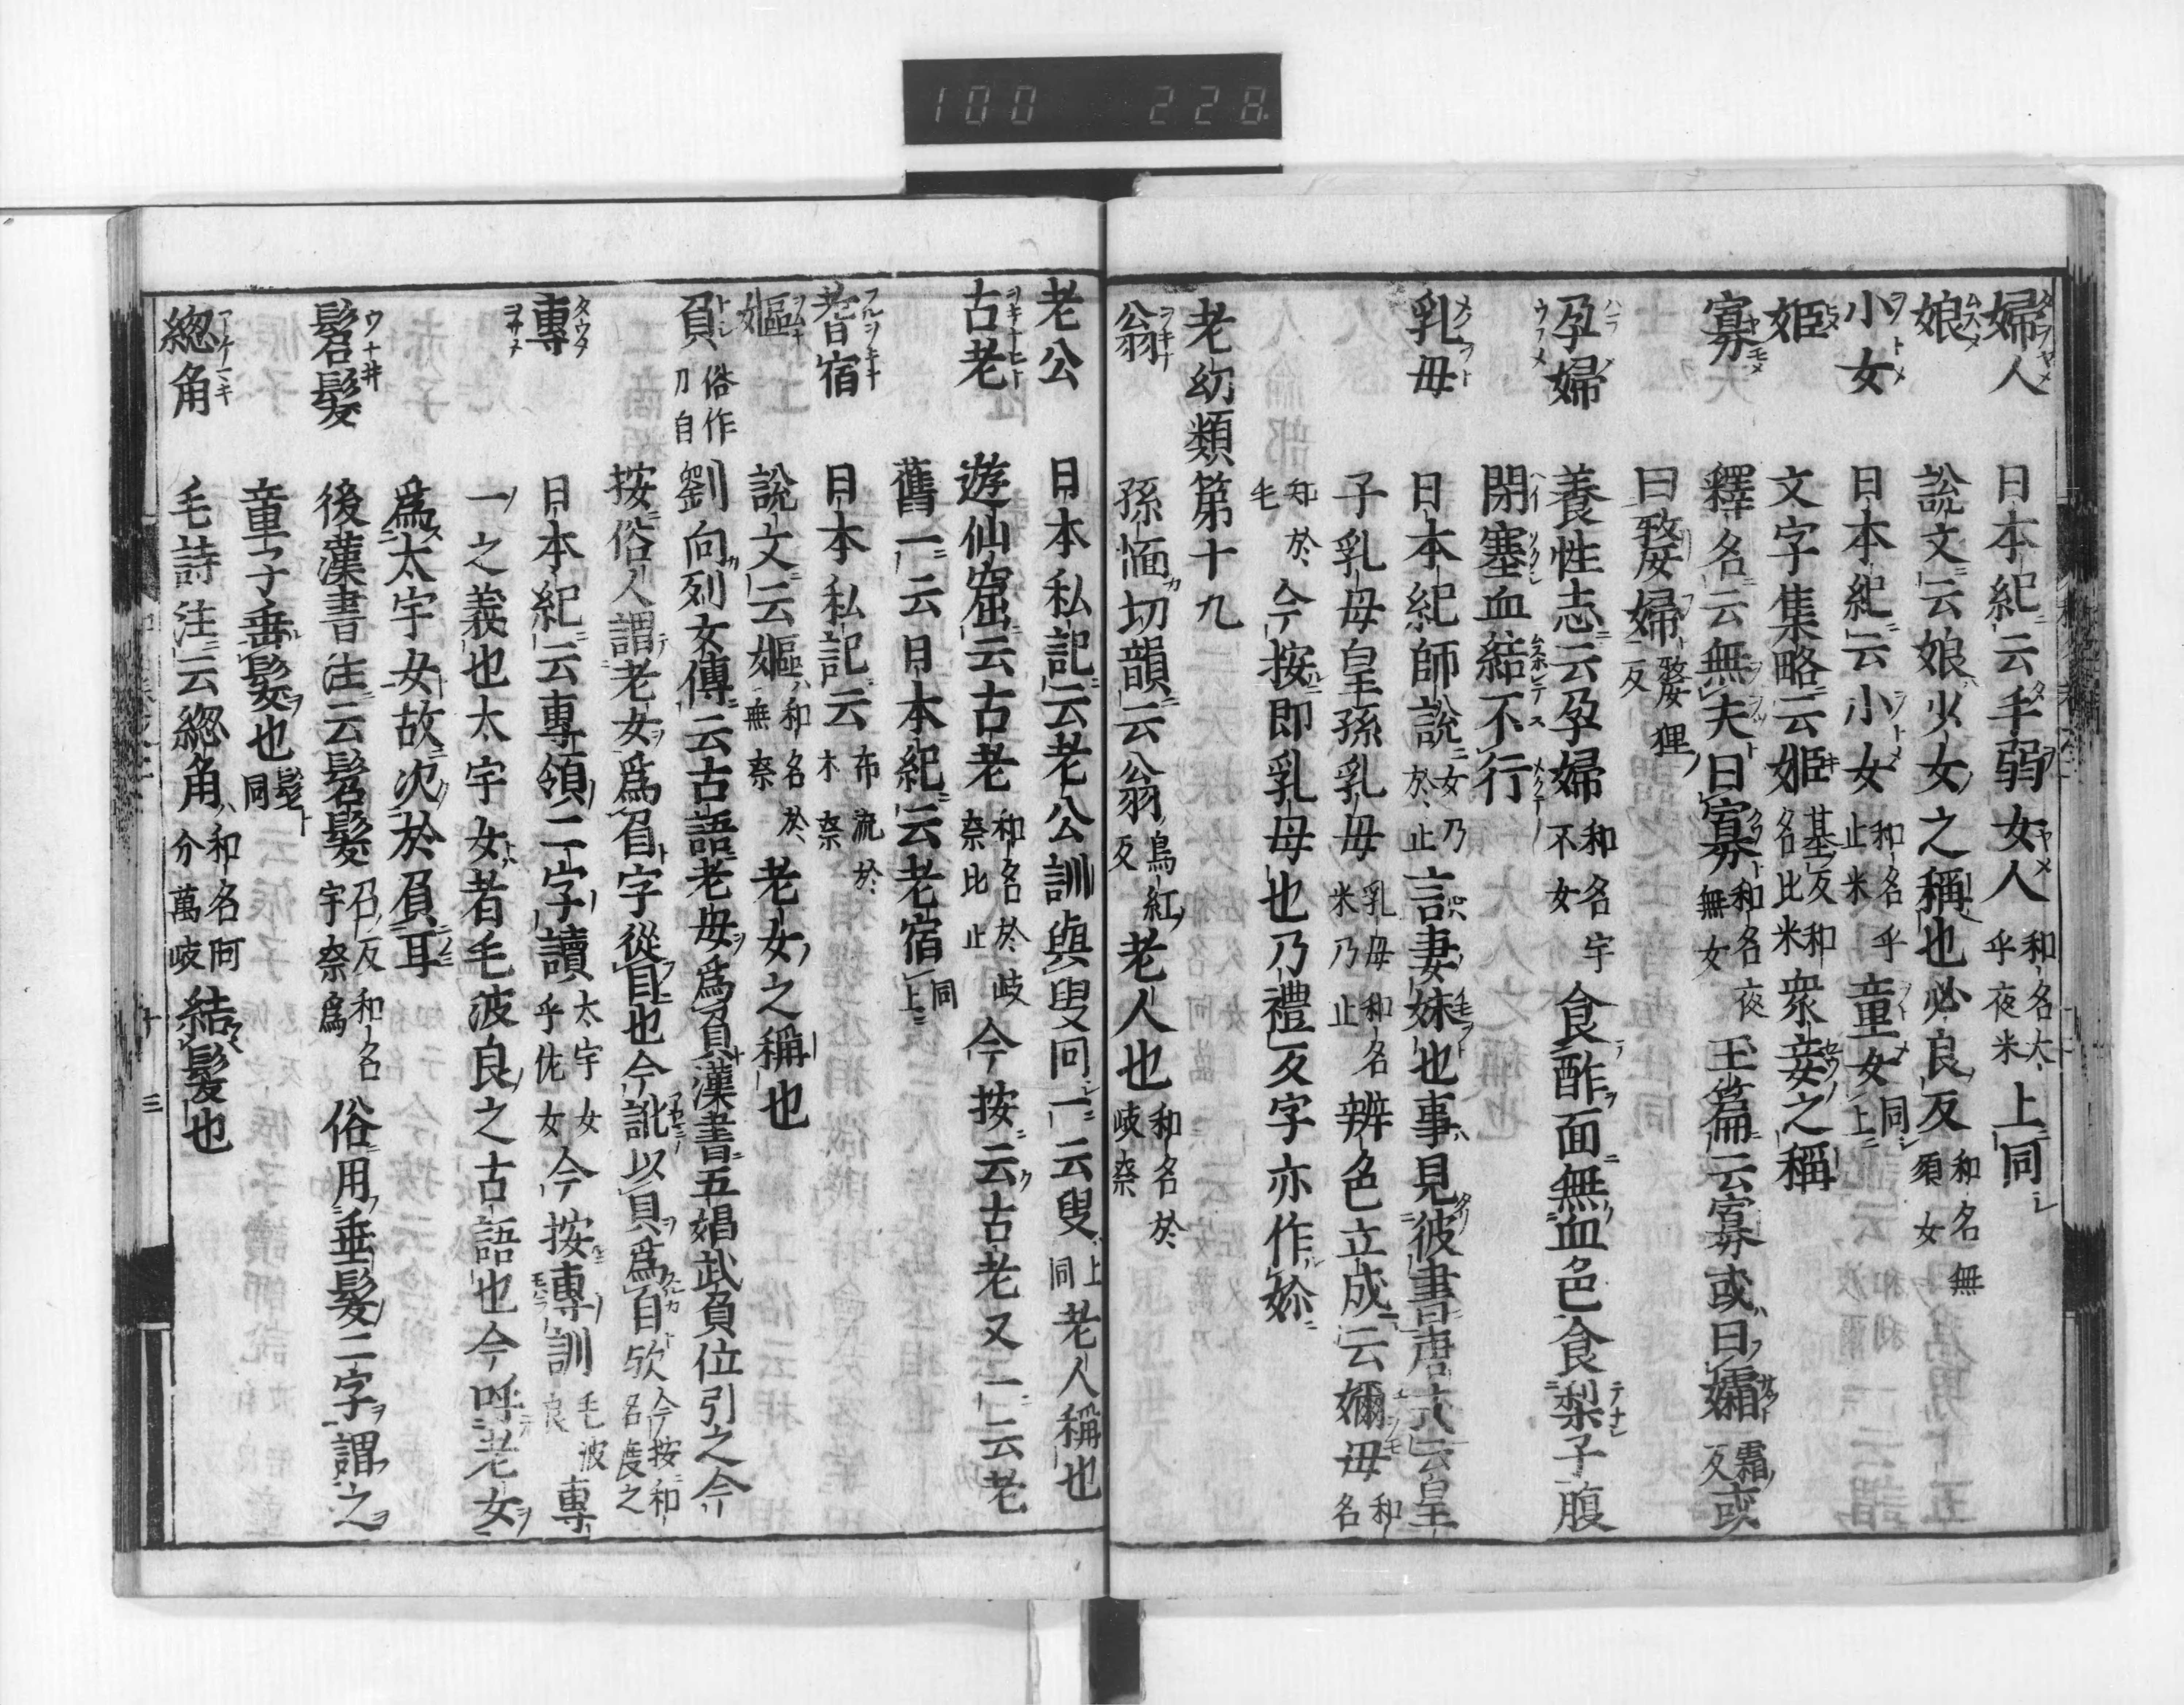 100 228
婦人 日本紀云手弱女人 和名太乎夜米 上同
娘 說文云娘少女之稱也必良反 和名無須女
小女 日本紀云小女 和名乎止米 童女 同上
姬 文字集略云姬 基反和名比米 衆妾之稱
寡 釋名云無夫曰寡 和名夜無女 玉篇云寡或曰孀 霜反 或
曰嫠婦 嫠狸反
孕婦 養性志云孕婦 和名宇不女 食酢面無血色食梨子腹
閉塞血結不行
乳母 日本紀師說 女乃於止 言妻妹也事見彼書唐式云皇
子乳母皇孫乳母 乳母和名米乃止 辨色立成云嬭母 和名
知於毛 今按即乳母也乃禮反字亦作妳
老幼類第十九
翁 孫愐切韻云翁 烏紅反 老人也 和名於岐奈
老公 日本私記云老公訓與叟同一云叟 上同 老人稱也
古老 遊仙窟云古老 和名於岐奈比止 今按云古老又一云老
舊一云日本紀云老宿 同上
耆宿 日本私記云 布流於木奈
嫗 說文云嫗 和名於無奈 老女之稱也
負 俗作刀自 劉向列女傳云古語老母爲負漢書五娼武負位引之今
按俗人謂老女爲負字從自也今訛以貝爲自歟 今按和名度之
專 日本紀云專領二字讀 太宇女乎佐女 今按專訓 毛波良 專
一之義也太宇女者毛波良之古語也今呼老女
爲太宇女故次於負耳
髫髮 後漢書注云髫髮 召反和名宇奈爲 俗用垂髮二字謂之
童子垂髮也 髫同
總角 毛詩注云總角 和名阿介萬岐 結髮也
十三